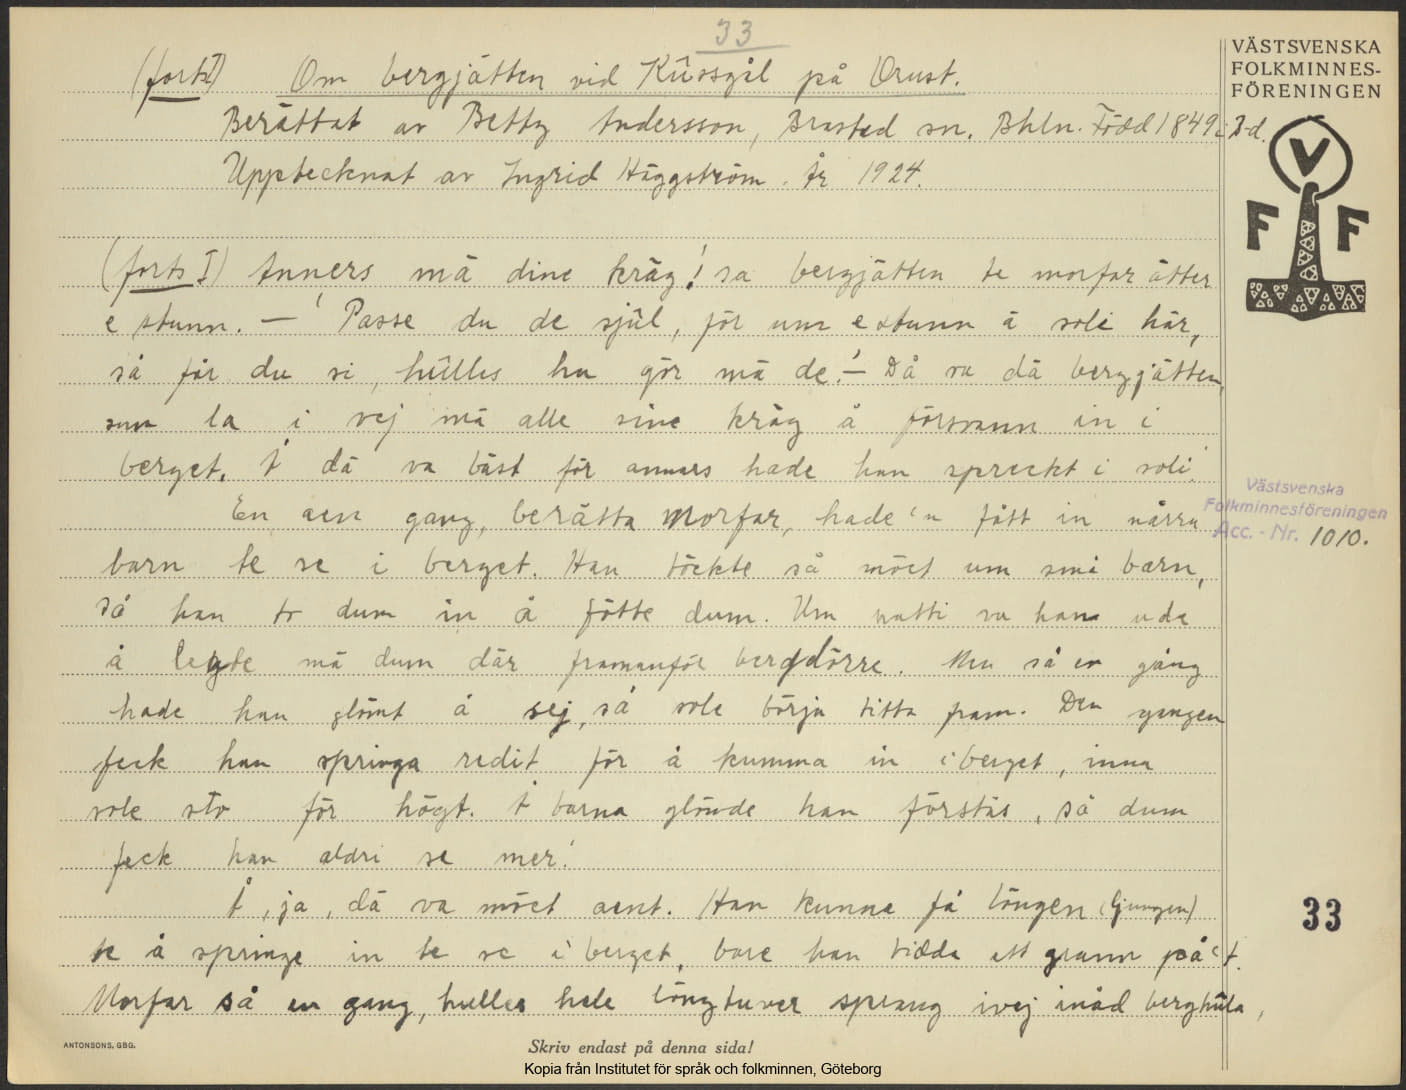 33
(forts I) Om bergjätten vid Kûssgål på Orust.
Berättat av Betty Andersson, Brastad sn. Bhln. Född 1849 i d.
Upptecknat av Ingrid Häggström. År 1924.
(forts I) Anners mä dine kräg! sa bergjätten te morfar ätter
e stunn. — Passe du de sjûl, för um e stunn ä soli här,
så får du si, hûlles ho gör mä de! — Då va dä bergjätten,
sum la i vej mä alle sine kräg å försvann in i
berget. Å dä va bäst för annars hade han spreckt i soli.
En aen gang, berätta Morfar, hade 'n fått in nårra
barn te se i berget. Han töckte så möet um små barn,
så han to dum in å fötte dum. Um natti va han ude
å legde mä dum där framanför bergdörre. Men så en gång
hade han glömt å sej, så sole börja titta fram. Den gangen
feck han springa redit för å kumma in i berget, inna
sole sto för högt. Å barna glömde han förstås, så dum
feck han aldri se mer!
Å, ja, dä va möet aent. Han kunne få lôngen (ljungen)
te å springe in te se i berget, bare han titta ett grann på 't.
Morfar så en gang, hulles hele lôngtuver sprang ivej inåd berghûla,
VÄSTSVENSKA
FOLKMINNES-
FÖRENINGEN
V
F F
Västsvenska
Folkminnesföreningen
Acc. - Nr. 1010.
33
ANTONSONS, GBG.
Skriv endast på denna sida!
Kopia från Institutet för språk och folkminnen, Göteborg